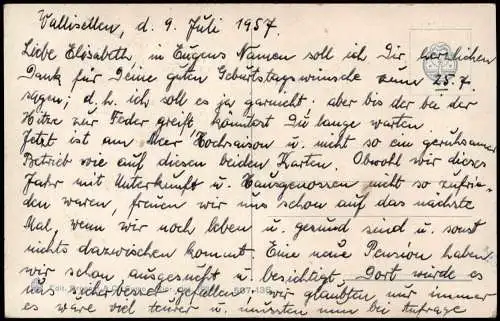 Vallisellen, d. 9. Juli 1957.
Liebe Elisabeth, in Eugens Namen soll ich Dir herzlichen
Dank für Deine guten Geburtstagswünsche zum 25.7.
sagen; d. h. ich soll es ja garnicht; aber bis der bei der
Hitze zur Feder greift könntest Du lange warten.
Jetzt ist am Meer Hochsaison u. nicht so ein geruhsamer
Betrieb wie auf diesen beiden Karten. Obwohl wir dieses
Jahr mit Unterkunft u. Hausgenossen nicht so zufrie-
den waren, freuen wir uns schon auf das nächste
Mal, wenn wir noch leben u. gesund sind u. sonst
nichts dazwischen kommt. Eine neue Pension haben
wir schon ausgesucht u. besichtigt. Dort würde es
uns sicher besser gefallen; wir glaubten nur immer
es wäre viel teurer u. mussten nun bei Anfrage